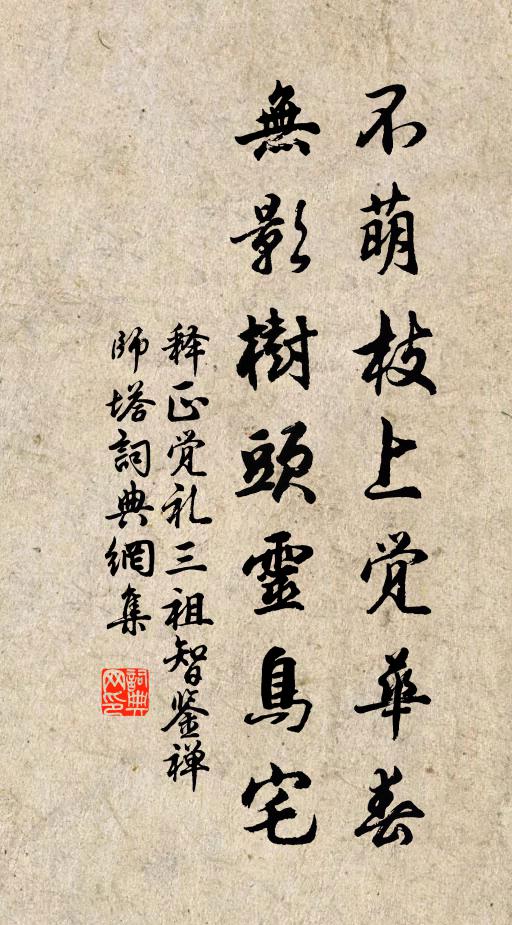 不萌枝上觉華春
無影樹頭靈鳥宅
释正觉礼三祖智鉴禅
師塔詞典網集
詞典
网印